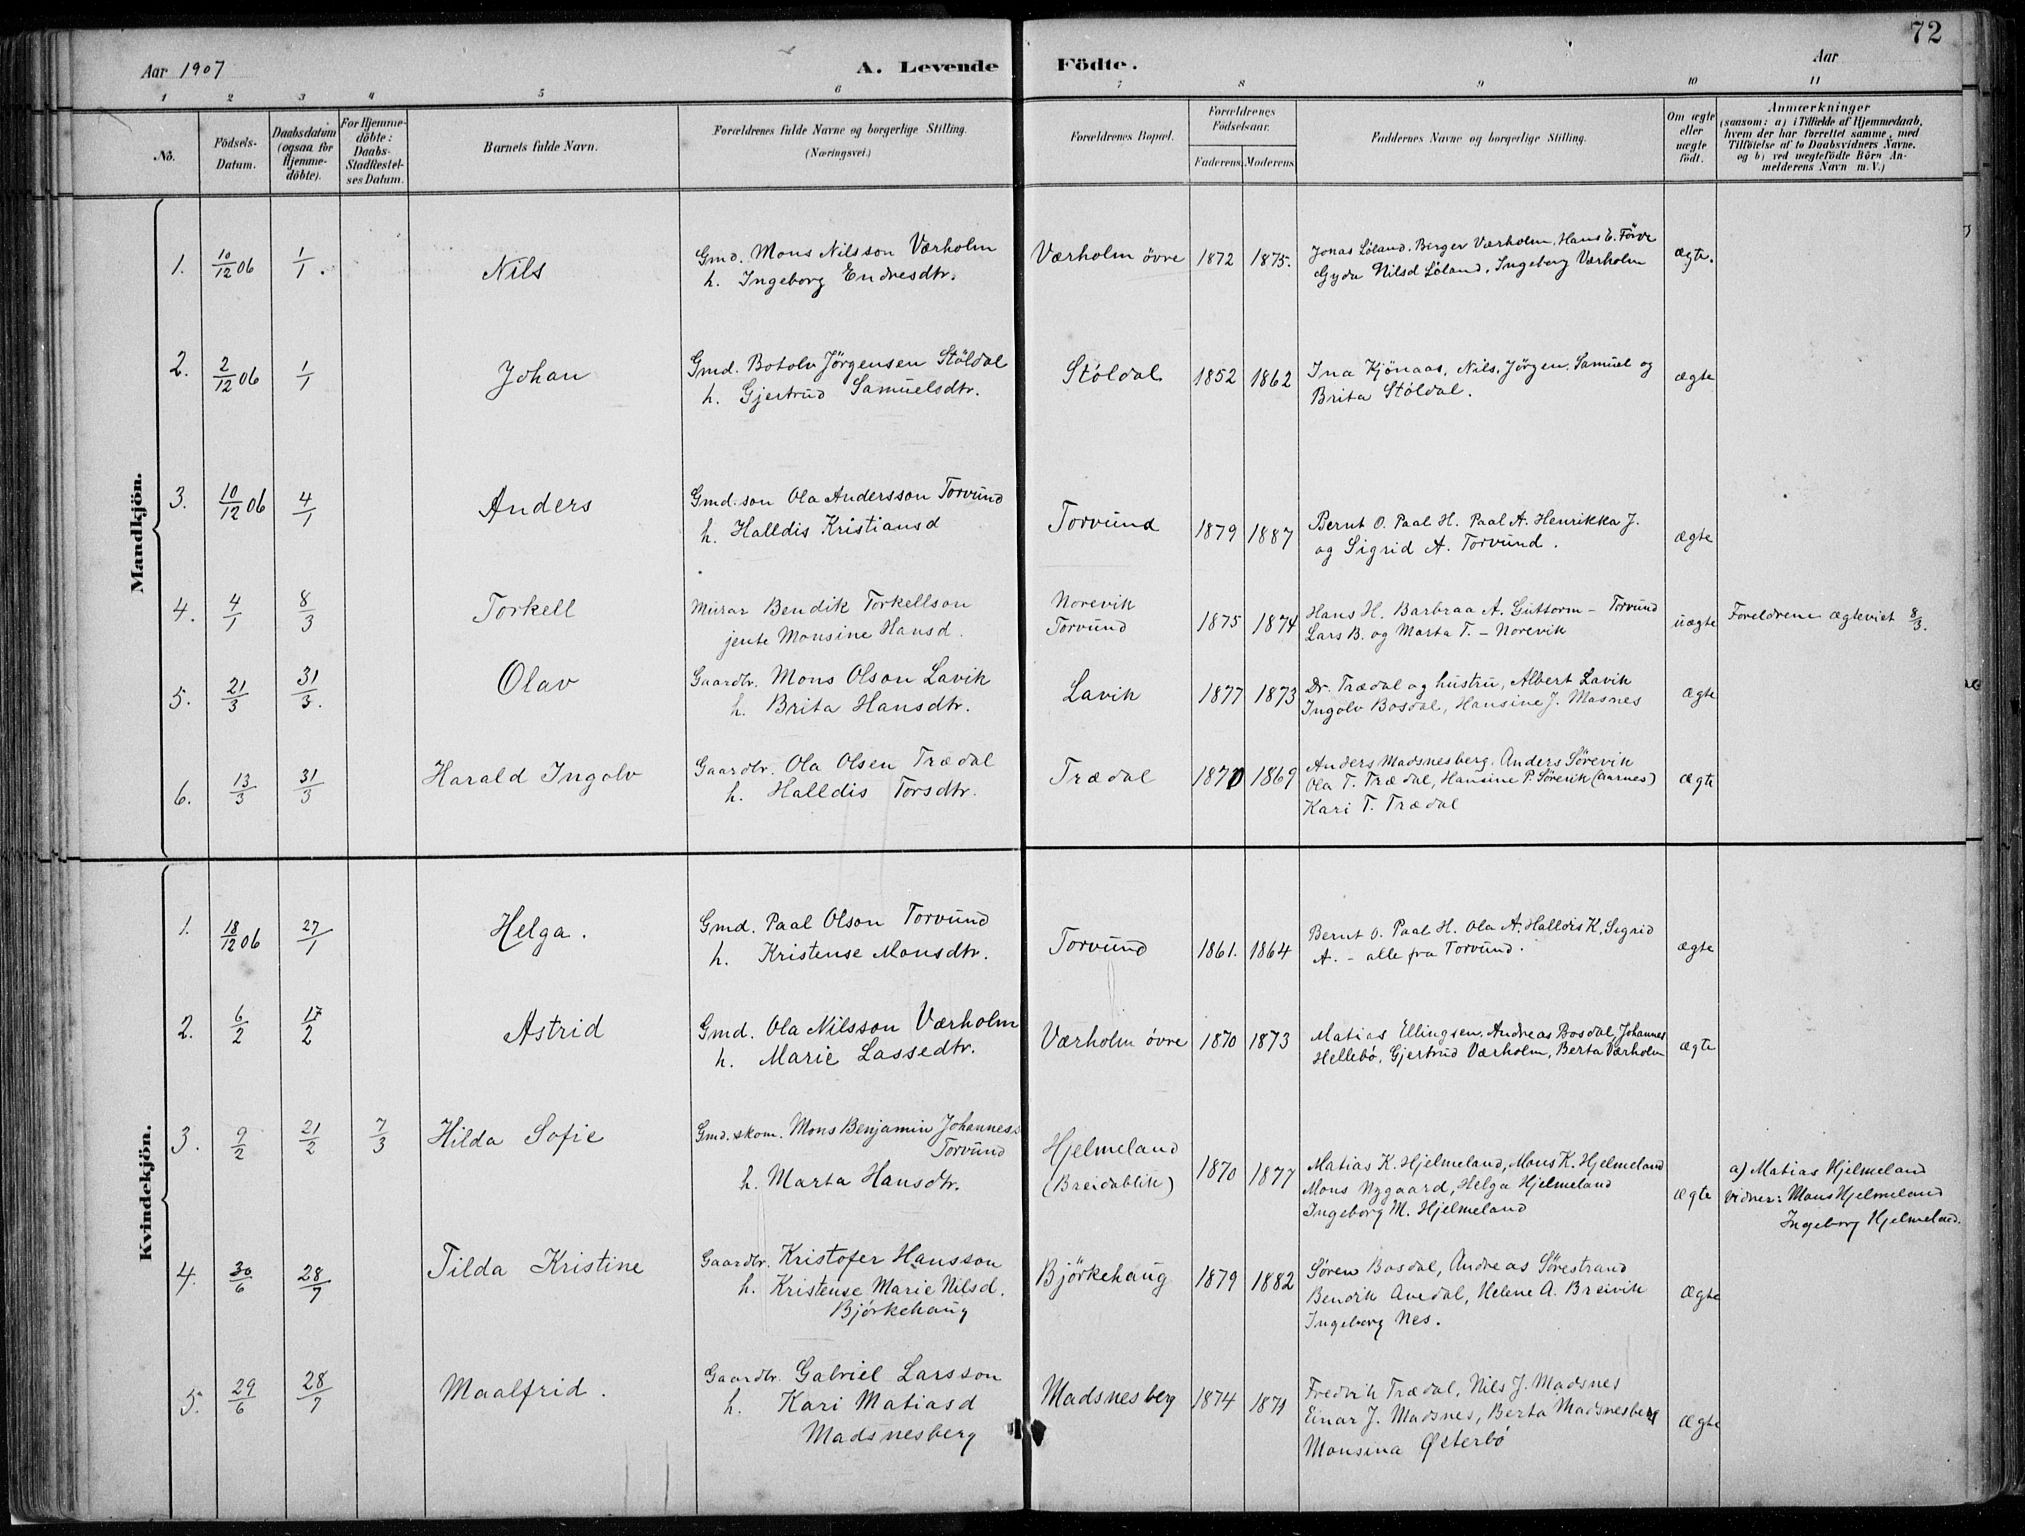 72
Aar 1907
A. Levende Födte.
Aar
1 2 3 4 5 6 7 8 9 10 11
No.
Födsels-Datum.
Daabsdatum (ogsaa for Hjemmedöbte).
For Hjemmedöbte: Daabs-Stadfestelses Datum.
Barnets fulde Navn.
Forældrenes fulde Navne og borgerlige Stilling. (Næringsvei.)
Forældrenes Bopæl.
Forældrenes Födselsaar.
Faderens. Moderens.
Faddernes Navne og borgerlige Stilling.
Om ægte eller uægte födt.
Anmærkninger
(saasom: a) i Tilfælde af Hjemmedaab,
hvem der har forrettet samme, med
Tilföielse af to Daabsvidners Navne.
og b) ved uægtefödte Börn An-
melderens Navn m. V.)
Mandkjön.
1. 10/12 06 1/1. Nils
Gmd. Mons Nilsson Værholm
h. Ingeborg Endresdtr.
Værholm övre 1872 1875.
Jonas Löland. Birger Værholm, Hans E. Förde
Gyda Nilsd Löland, Ingeborg Værholm
ægte.
2. 2/12 06 1/1 Johan
Gmd. Botolv Jørgensen Stöldal
h. Gjertrud Samuelsdtr.
Stöldal 1852 1862
Ina Kjönaas, Nils, Jørgen, Samuel og
Brita Stöldal.
ægte
3. 10/12 06 4/1 Anders
Gmd.son Ola Andersson Torvund
h. Halldis Kristiansd
Torvund 1879 1887
Bernt O. Paal H. Paal A. Henrikka J.
og Sigrid A. Torvund.
ægte
4. 4/1 8/3 Torkell
Murar Bendik Torkellson
jente Monsine Hansd.
Norevik
Torvund
1875 1874
Hans H. Barbraa A. Guttorm - Torvund
Lars B. og Marta T. - Norevik
uægte
Foreldrene ægteviet 8/3.
5. 21/3 31/3. Olav
Gaardbr. Mons Olson Lavik
h. Brita Hansdtr.
Lavik 1877 1873
Dr. Trædal og hustru, Albert Lavik
Ingolv Bosdal, Hansine J. Masnes
ægte
6. 13/3 31/3 Harald Ingolv
Gaardbr. Ola Olsen Trædal
h. Halldis Torsdtr.
Trædal 1870 1869
Anders Madsnesberg. Anders Sørevik
Ola T. Trædal, Hansine P. Sørevik (Aarnes)
Kari T. Trædal
ægte
Kvindekjön.
1. 18/12 06 27/1 Helga.
Gmd. Paal Olson Torvund
h. Kristense Monsdtr.
Torvund 1861. 1864
Bernt O. Paal H. Ola A. Halldis K, Sigrid
A. - alle fra Torvund.
ægte
2. 6/2 17/2 Astrid
Gmd. Ola Nilsson Værholm
h. Marie Lassedtr.
Værholm övre 1870 1873
Matias Ellingsen, Andreas Bosdal, Johannes
Hellebö, Gjertrud Værholm, Berta Værholm
ægte
3. 9/2 21/2 7/3 Hilda Sofie
Gmd. skom. Mons Benjamin Johanness.
Torvund
h. Marta Hansdtr.
Hjelmeland
(Breidablik)
1870 1877
Matias K. Hjelmeland, Mons K. Hjelmeland
Mons Nygaard, Helga Hjelmeland
Ingeborg M. Hjelmeland
ægte
a) Matias Hjelmeland
Vidner: Mons Hjelmeland
Ingeborg Hjelmeland.
4. 30/6 28/7 Tilda Kristine
Gaardbr. Kristofer Hansson
h. Kristense Marie Nilsd.
Björkehaug
Björkehaug 1879 1882
Søren Bosdal, Andreas Sørestrand
Bendik Avedal, Helene A. Breivik
Ingeborg Nes.
Ægte
5. 29/6 28/7 Maalfrid.
Gaardbr. Gabriel Larsson
h. Kari Matiasd
Madsnesberg
Madsnesberg 1874 1871
Fredrik Trædal, Nils J. Madsnes
Einar J. Madsnes, Berta Madsnesberg
Monsina Østerbö
Ægte